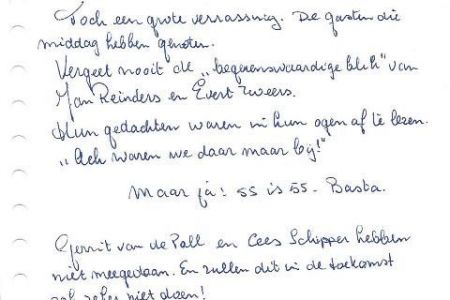 Toch een grote verrassing. De gasten die
middag hebben genoten.
Vergeet nooit de „begerenswaardige blik" van
Jan Reinders en Evert Zweers.
Hun gedachten waren in hun ogen af te lezen.
„Ach waren we daar maar bij!"
Maar ja: 55 is 55. Basta.
Gerrit van de Poll en Cees Schipper hebben
niet meegedaan. En zullen dit in de toekomst
ook zeker niet doen!